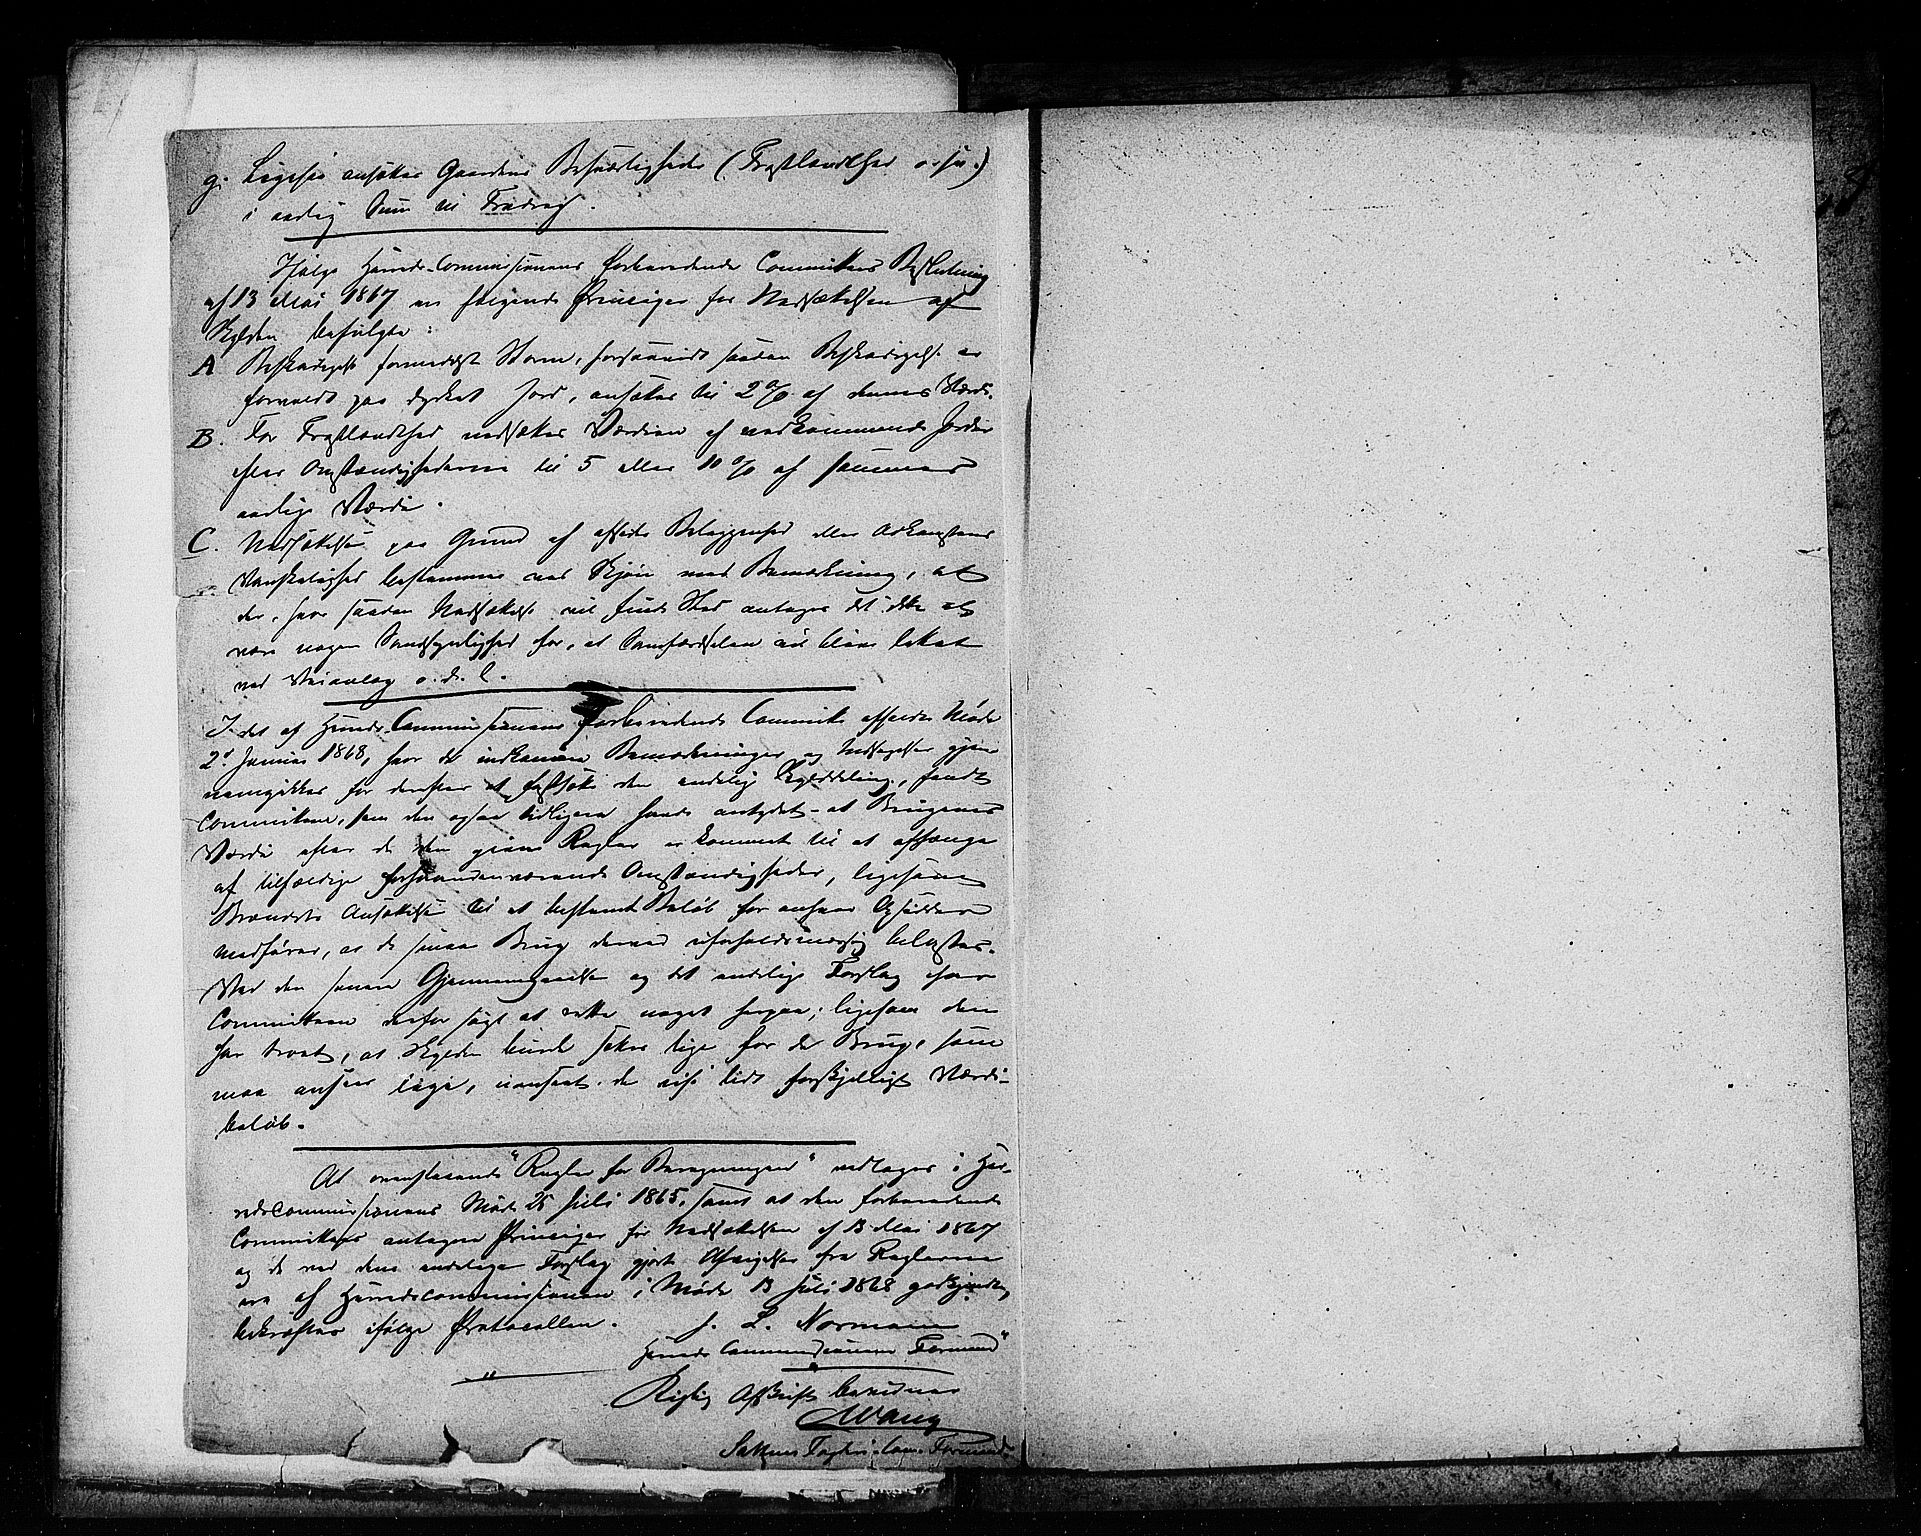 g. Ligesaa ansættes Gaardens Besværligheder (Frostlændthed o. s. v.)
i aarlig Sum til Fradrag.
Ifølge Herreds-Commissionens forberedende Committees Beslutning
af 13 Mai 1867 ere følgende Principer for Nedsættelsen af
Skylden befulgte:
A Beskadigelse formedelst Storm, forsaavidt saadan Beskadigelse er
forvoldt paa dyrket Jord, ansættes til 2 % af dennes Værdi.
B. For Frostlændthed nedsættes Værdien af vedkommende Jorder
efter Omstændighederne til 5 eller 10 % af sammes
aarlige Værdi.
C. Nedsættelse paa Grund af afsides Beliggenhed eller Adkomstens
Vanskelighed bestemmes ved Skjøn med Bemærkning, at
der, hvor saadan Nedsættelse vil finde Sted antages det ikke at
være nogen Sandsynlighed for, at Samfærdselen vil blive lettet
ved Veianlæg o. d. l.
I det af Herreds-Commissionens forberedende Committe afholdte Møde
2d Januar 1868, hvor de indkomne Bemærkninger og Indsigelser gjen-
nemgikkes for derefter at fastsætte den endelig Skylddeling, fandt
Committeen, som den ogsaa tidligere havde antydet - at Brugenes
Værdi efter de den givne Regler er kommet til at afhænge
af tilfældige forhaandenværende Omstændigheder, ligesom
Brændets Ansættelse til et bestemt Beløb for enhver Opsidder
medfører, at de smaa Brug derved uforholdsmæssig belastes.
Ved den senere Gjennemgaaelse og det endelige Forslag har
Committeen derfor søgt at rette noget herpaa; ligesom den
har troet, at Skylden burde sættes lige for de Brug, som
maa ansees lige, uanseet de vise lidt forskjelligt Værdi-
beløb.
At ovenstaaende "Regler for Beregningen" vedtages i Her-
redscommissionens Møde 25 Juli 1865, samt at den forberedende
Committees antagne Principer for Nedsættelsen af 13 Mai 1867
og de ved dens endelige Forslag gjorte Afvigelser fra Reglerne
ere af Herredscommissionen i Møde 13 Juli 1868 godkjendte,
bekræftes ifølge Protocollen. J. L. Normann
Herreds Commissionens Formand"
Rigtig Afskrift bevidner
Wang
Formand